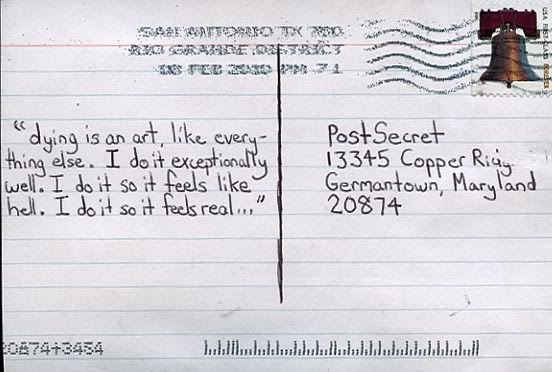 SAN ANTONIO TX 780
RIO GRANDE DISTRICT
USA FIRST-CLASS FOREVER
"dying is an art, like every-
thing else. I do it exceptionally
well. I do it so it feels like
hell. I do it so it feels real..."
PostSecret
13345 Copper
Germantown, Maryland
20874
20874+3454